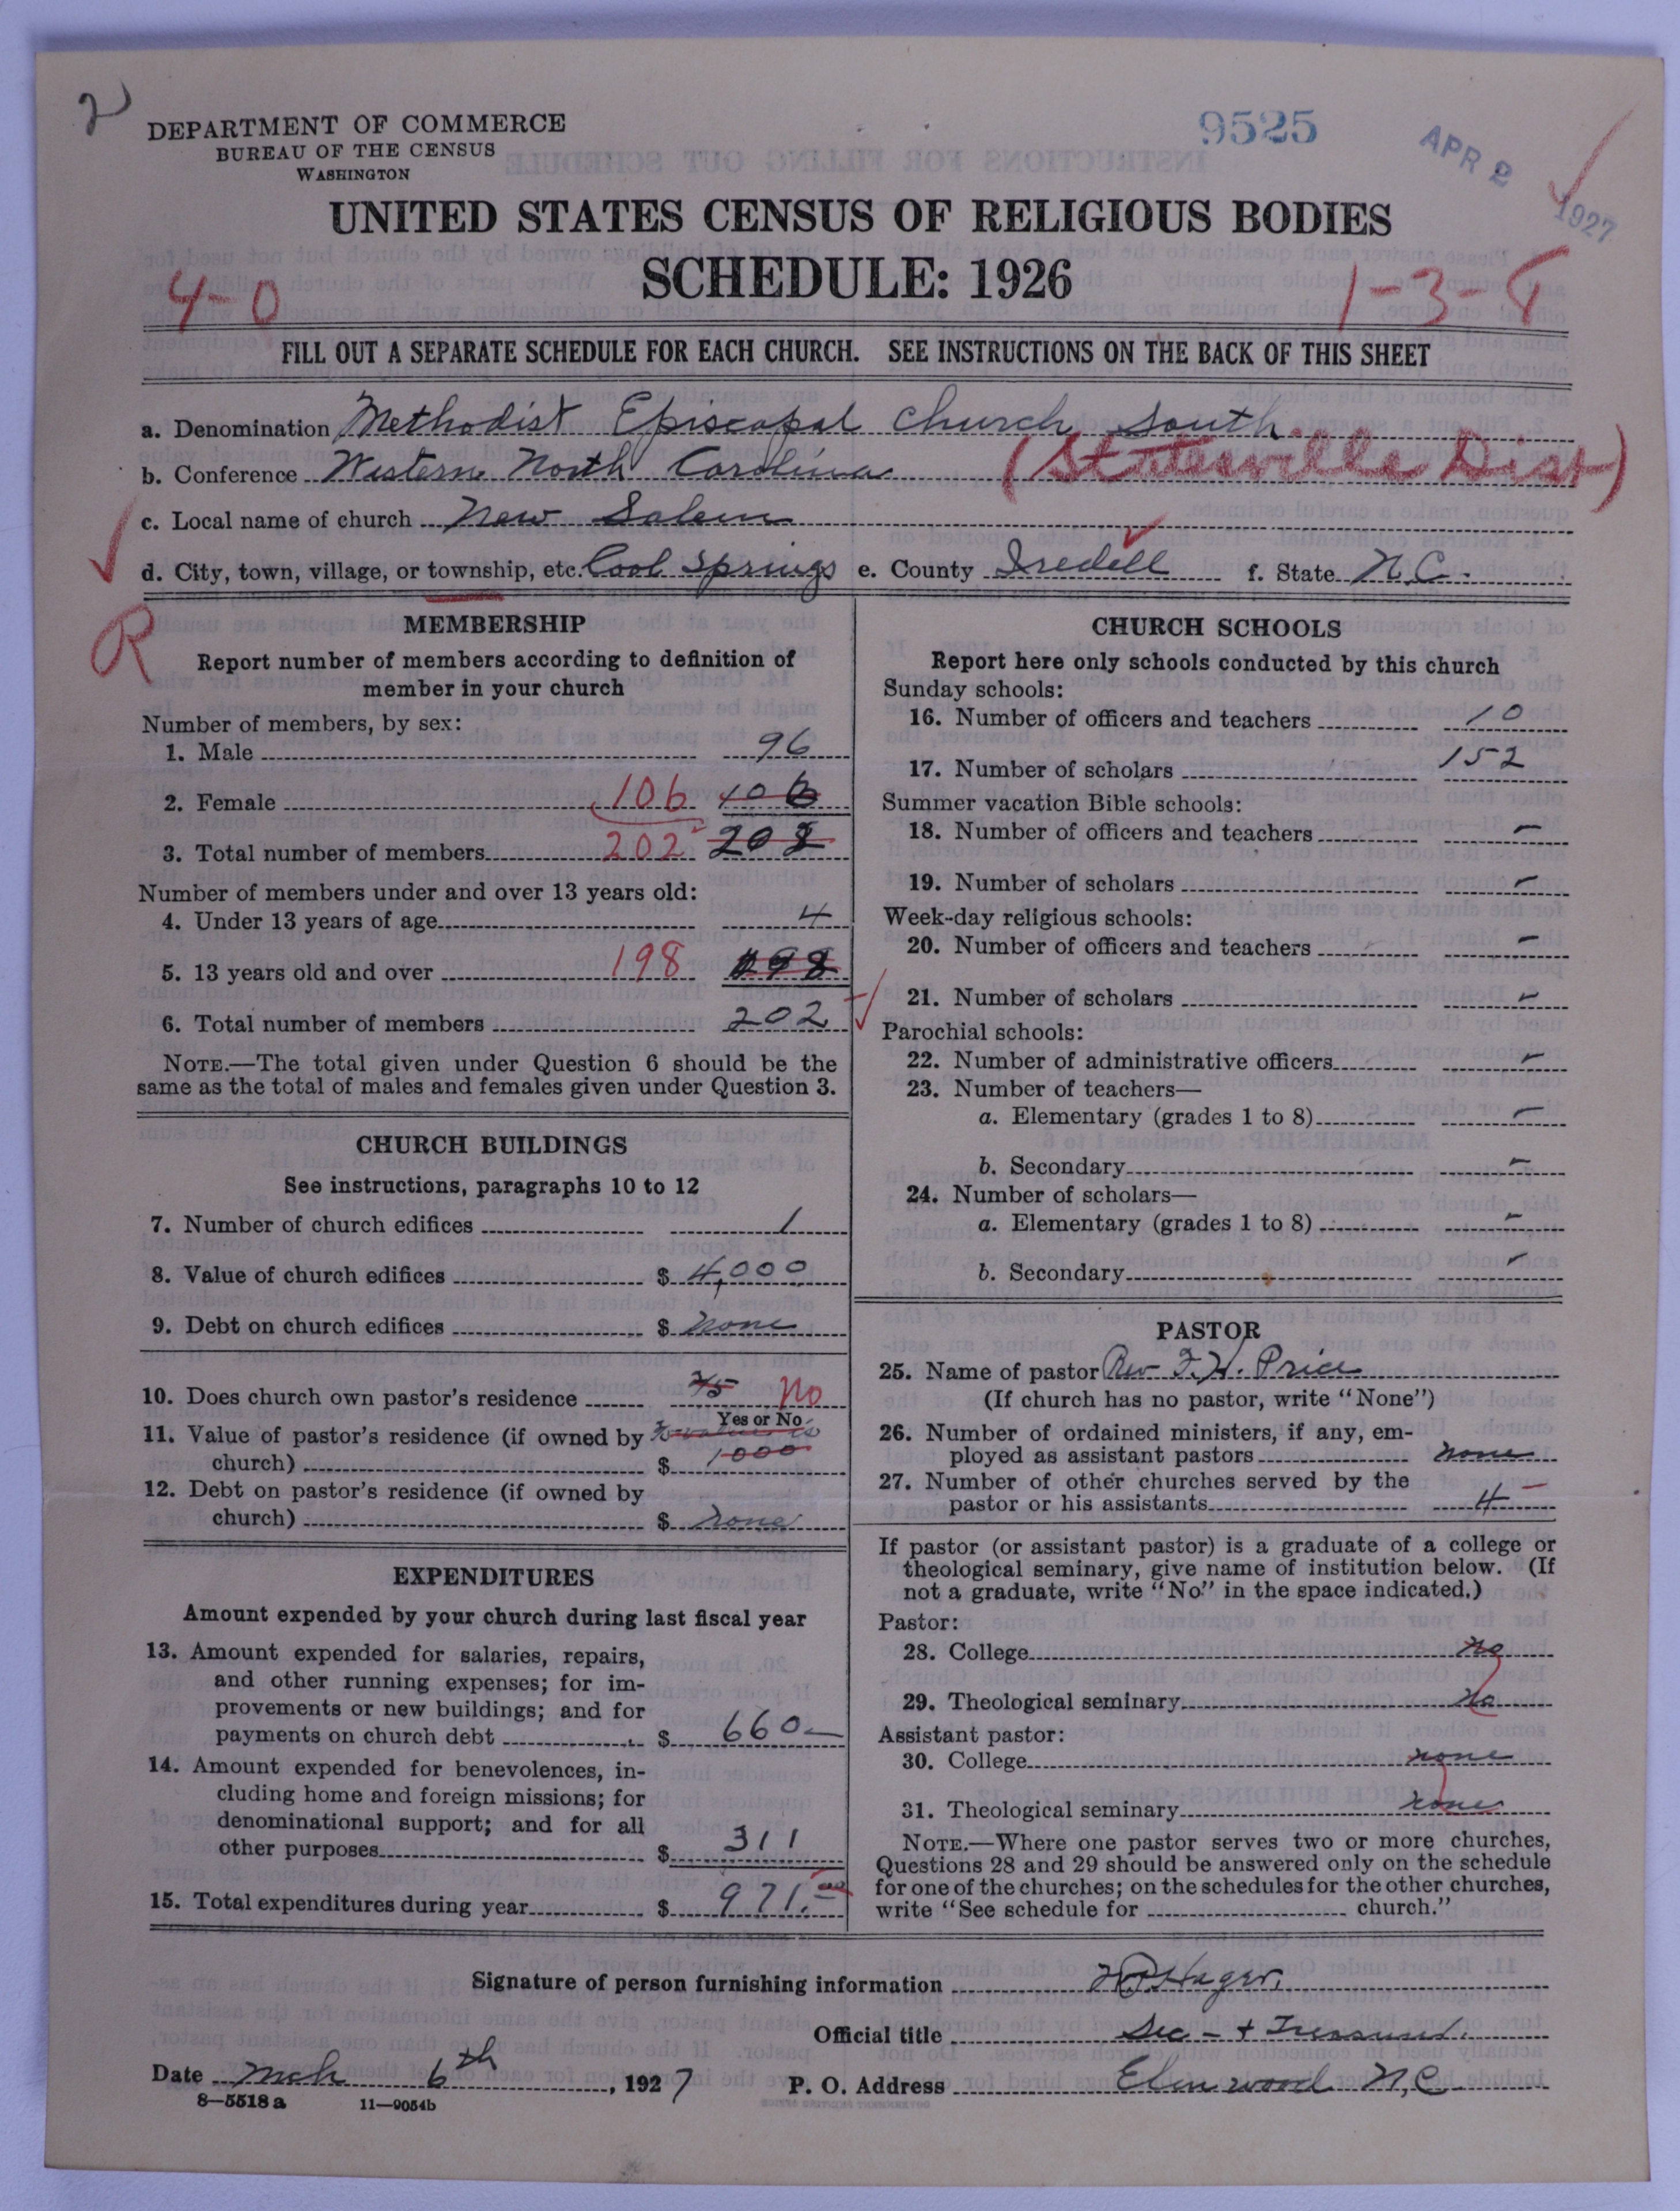 2
DEPARTMENT OF COMMERCE
BUREAU OF THE CENSUS
WASHINGTON
9525
APR 2 1927
UNITED STATES CENSUS OF RELIGIOUS BODIES
SCHEDULE: 1926
4-0
1-3-8
FILL OUT A SEPARATE SCHEDULE FOR EACH CHURCH. SEE INSTRUCTIONS ON THE BACK OF THIS SHEET
a. Denomination Methodist Episcopal Church, South
b. Conference Western North Carolina (Statesville Dist)
c. Local name of church New Salem
d. City, town, village, or township, etc. Cool Springs e. County Iredell f. State N.C.
R
MEMBERSHIP
Report number of members according to definition of
member in your church
Number of members, by sex:
1. Male 96
2. Female 106 106
3. Total number of members 202 202
Number of members under and over 13 years old:
4. Under 13 years of age 4
5. 13 years old and over 198 198
6. Total number of members 202
NOTE.—The total given under Question 6 should be the
same as the total of males and females given under Question 3.
CHURCH BUILDINGS
See instructions, paragraphs 10 to 12
7. Number of church edifices 1
8. Value of church edifices $ 4,000
9. Debt on church edifices $ none
10. Does church own pastor's residence No
Yes or No
11. Value of pastor's residence (if owned by
church) $ 1000
12. Debt on pastor's residence (if owned by
church) $ none
EXPENDITURES
Amount expended by your church during last fiscal year
13. Amount expended for salaries, repairs,
and other running expenses; for im-
provements or new buildings; and for
payments on church debt $ 660—
14. Amount expended for benevolences, in-
cluding home and foreign missions; for
denominational support; and for all
other purposes $ 311
15. Total expenditures during year $ 971.00
CHURCH SCHOOLS
Report here only schools conducted by this church
Sunday schools:
16. Number of officers and teachers 10
17. Number of scholars 152
Summer vacation Bible schools:
18. Number of officers and teachers –
19. Number of scholars –
Week-day religious schools:
20. Number of officers and teachers –
21. Number of scholars –
Parochial schools:
22. Number of administrative officers –
23. Number of teachers—
a. Elementary (grades 1 to 8) –
b. Secondary –
24. Number of scholars—
a. Elementary (grades 1 to 8) –
b. Secondary –
PASTOR
25. Name of pastor Rev F. H. Price
(If church has no pastor, write "None")
26. Number of ordained ministers, if any, em-
ployed as assistant pastors none
27. Number of other churches served by the
pastor or his assistants 4
If pastor (or assistant pastor) is a graduate of a college or
theological seminary, give name of institution below. (If
not a graduate, write "No" in the space indicated.)
Pastor:
28. College no
29. Theological seminary no
Assistant pastor:
30. College none
31. Theological seminary none
NOTE.—Where one pastor serves two or more churches,
Questions 28 and 29 should be answered only on the schedule
for one of the churches; on the schedules for the other churches,
write "See schedule for church."
Signature of person furnishing information Hager.
Official title Sec - + Treasurer.
Date Mch 6th, 1927 P. O. Address Elmwood N,C
8—5518 a 11—9054b